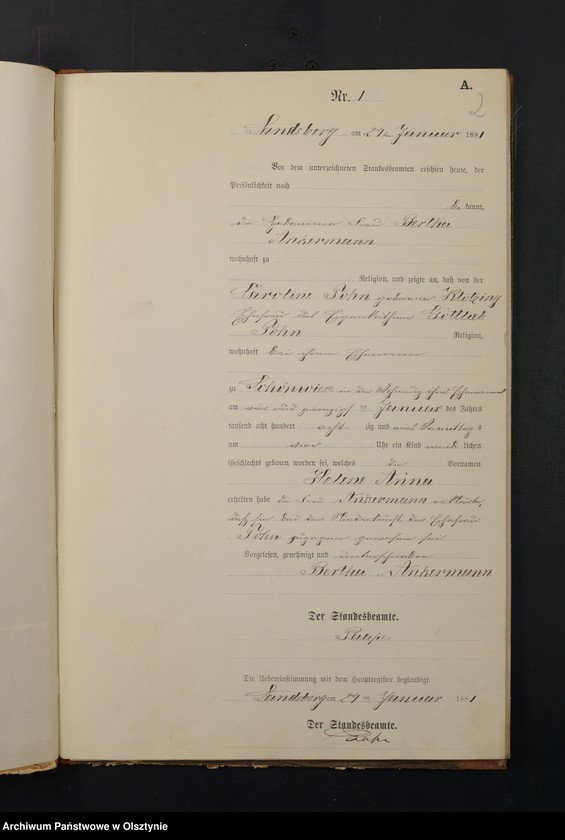 A.
2
Nr. 1
Landsberg am 24ten Januar 1881
Vor dem unterzeichneten Standesbeamten erschien heute, der
Persönlichkeit nach
bekannt,
die Hebamme Frau Bertha
Ankermann
wohnhaft zu
Religion, und zeigte an, daß von der
Caroline Pöhn geborene
Ehefrau des Gottlieb
Pöhn Religion,
wohnhaft bei ihrem Ehemanne
zu Schönwiese in der Wohnung ihres Ehemannes
am zwanzigsten Januar des Jahres
tausend acht hundert achtzig und eins Vormittags
um Uhr ein Kind weiblichen
Geschlechts geboren worden sei, welches die Vornamen
Helene Anna
erhalten habe die Frau Ankermann erklärte,
daß sie bei der Niederkunft der Ehefrau
Pöhn zugegen gewesen sei
Vorgelesen, genehmigt und unterschrieben
Bertha Ankermann
Der Standesbeamte.
Die Uebereinstimmung mit dem Hauptregister beglaubigt.
Landsberg am 24ten Januar 1881
Der Standesbeamte.
Archiwum Państwowe w Olsztynie